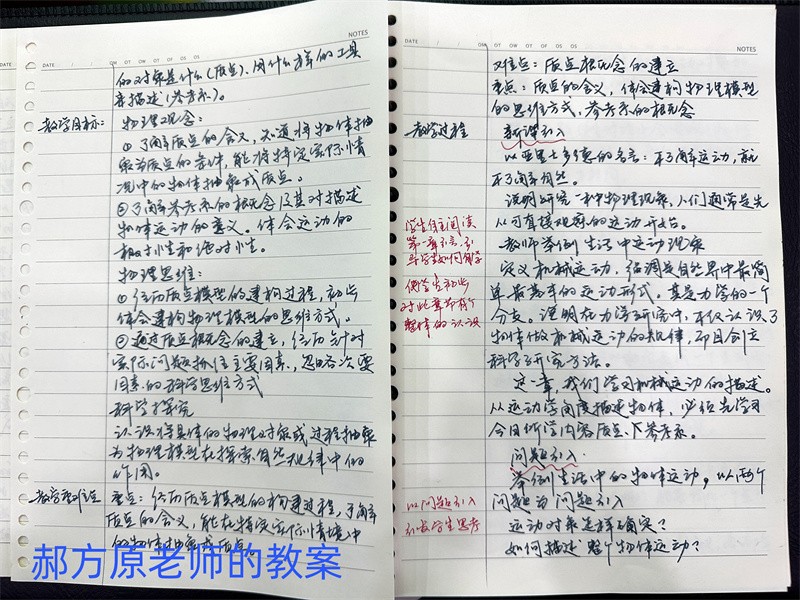 DATE / / MO TU WE TH FR SA SU NOTES
的对象是什么(质点)、用什么样的工具
来描述(参考系)。
教学目标:
物理观念:
①了解质点的含义,知道将物体抽
象为质点的条件,能将特定实际情
况中的物体抽象成质点。
②了解参考系的概念及其对描述
物体运动的意义。体会运动的
相对性和绝对性。
物理思维:
①经历质点模型的建构过程,初步
体会建构物理模型的思维方式。
②通过质点概念的建立,经历针对
实际问题抓住主要因素,忽略次要
因素的科学思维方式
科学探究
认识将具体的物理对象或过程抽象
为物理模型在探索自然规律中的
作用。
教学重难点
重点:经历质点模型的构建过程,了解
质点的含义,能在特定实际情境中
的物体抽象成质点。
郝方原老师的教案
DATE / / MO TU WE TH FR SA SU NOTES
难点:质点概念的建立
重点:质点的含义,体会建构物理模型
的思维方式,参考系的概念
教学过程
新课引入
以亚里士多德的名言:不了解运动,就
不了解自然。
说明研究一种物理现象,人们通常是先
从可直接观察的运动开始。
学生自主阅读
第一章引言,引
导学生如何科学
教师举例生活中运动现象
定义机械运动,强调是自然界中最简
单最基本的运动形式。其是力学的一个
分支。说明在力学研究中,不仅认识了
物体做机械运动的规律,而且创立
科学研究方法。
使学生初步
对此章节有个
整体的认识
这一章,我们学习机械运动的描述。
从运动学角度描述物体,必须先学习
今日所学内容质点、参考系。
问题引入
举例生活中的物体运动,以两个
问题为问题引入
以问题引入
引发学生思考
运动对象怎样确定?
如何描述整个物体运动?